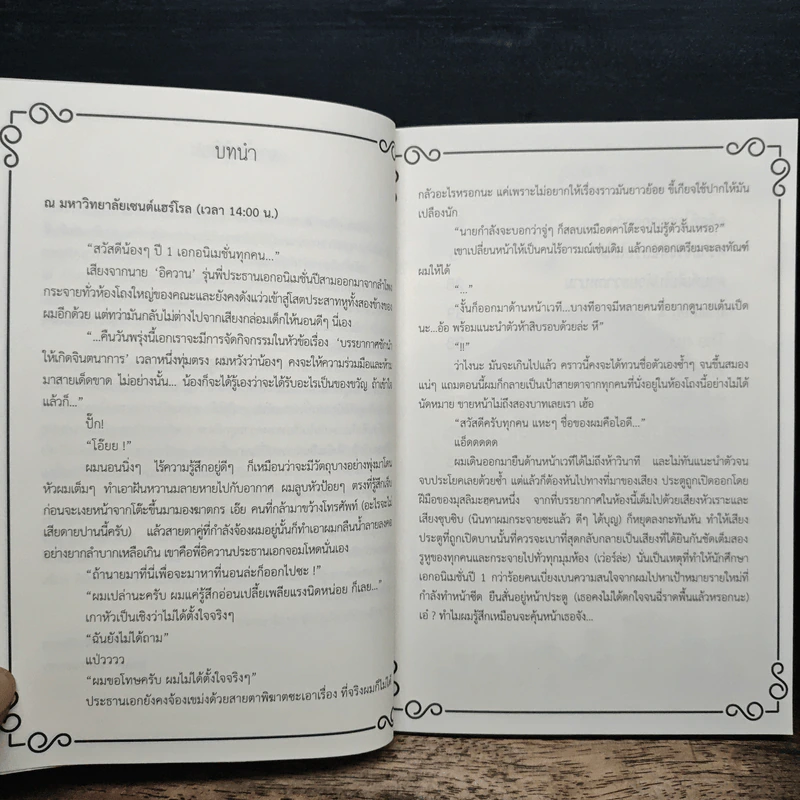 บทนำ
ณ มหาวิทยาลัยเซนต์แฮร์โรล (เวลา 14:00 น.)
“สวัสดีน้องๆ ปี 1 เอกอนิเมชั่นทุกคน...”
เสียงจากนาย ‘อิควาน’ รุ่นพี่ประธานเอกอนิเมชั่นปีสามออกมาจากลำโพง
กระจายทั่วห้องโถงใหญ่ของคณะและยังคงดังแว่วเข้าสู่โสตประสาทหูทั้งสองข้างของ
ผมอีกด้วย แต่ทว่ามันกลับไม่ต่างไปจากเสียงกล่อมเด็กให้นอนดีๆ นี่เอง
“...คืนวันพรุ่งนี้เอกเราจะมีการจัดกิจกรรมในหัวข้อเรื่อง ‘บรรยากาศชักนำ
ให้เกิดจินตนาการ’ เวลาหนึ่งทุ่มตรง ผมหวังว่าน้องๆ คงจะให้ความร่วมมือและห้าม
มาสายเด็ดขาด ไม่อย่างนั้น... น้องก็จะได้รู้เองว่าจะได้รับอะไรเป็นของขวัญ ถ้าเข้าใจ
แล้วก็...”
ปั๊ก!
“โอ๊ยย !”
ผมนอนนิ่งๆ ไร้ความรู้สึกอยู่ดีๆ ก็เหมือนว่าจะมีวัตถุบางอย่างพุ่งมาโดน
หัวผมเต็มๆ ทำเอาฝันหวานมลายหายไปกับอากาศ ผมลูบหัวป้อยๆ ตรงที่รู้สึกเจ็บ
ก่อนจะเงยหน้าจากโต๊ะขึ้นมามองฆาตกร เอ๊ย คนที่กล้ามาขว้างโทรศัพท์ (อะไรจะไม่
เสียดายปานนี้ครับ) แล้วสายตาคู่ที่กำลังจ้องผมอยู่นั้นก็ทำเอาผมกลืนน้ำลายลงคอ
อย่างยากลำบากเหลือเกิน เขาคือพี่อิควานประธานเอกจอมโหดนั่นเอง
“ถ้านายมาที่นี่เพื่อจะมาหาที่นอนล่ะก็ออกไปซะ !”
“ผมเปล่านะครับ ผมแค่รู้สึกอ่อนเปลี้ยเพลียแรงนิดหน่อย ก็เลย...”
เกาหัวเป็นเชิงว่าไม่ได้ตั้งใจจริงๆ
“ฉันยังไม่ได้ถาม”
แป่วววว
“ผมขอโทษครับ ผมไม่ได้ตั้งใจจริงๆ”
ประธานเอกยังคงจ้องเขม่งด้วยสายตาพิฆาตซะเอาเรื่อง ที่จริงผมก็ไม่ได้
กลัวอะไรหรอกนะ แค่เพราะไม่อยากให้เรื่องราวมันยาวย้อย ขี้เกียจใช้ปากให้มัน
เปลืองนัก
“นายกำลังจะบอกว่าจู่ๆ ก็สลบเหมือดคาโต๊ะจนไม่รู้ตัวงั้นเหรอ?”
เขาเปลี่ยนหน้าให้เป็นคนไร้อารมณ์เช่นเดิม แล้วกอดอกเตรียมจะลงทัณฑ์
ผมให้ได้
“...”
“งั้นก็ออกมาด้านหน้าเวที...บางทีอาจมีหลายคนที่อยากดูนายเต้นเป็ด
นะ...อ้อ พร้อมแนะนำตัวห้าสิบรอบด้วยล่ะ หึ”
“!!”
ว่าไงนะ มันจะเกินไปแล้ว คราวนี้คงจะได้ทวนชื่อตัวเองซ้ำๆ จนขึ้นสมอง
แน่ๆ แถมตอนนี้ผมก็กลายเป็นเป้าสายตาจากทุกคนที่นั่งอยู่ในห้องโถงนี้อย่างไม่ได้
นัดหมาย ขายหน้าไม่ถึงสองบาทเลยเรา เฮ้อ
“สวัสดีครับทุกคน แหะๆ ชื่อของผมคือไอดี...”
แอ็ดดดดด
ผมเดินออกมายืนด้านหน้าเวทีได้ไม่ถึงห้าวินาที และไม่ทันแนะนำตัวจน
จบประโยคเลยด้วยซ้ำ แต่แล้วก็ต้องหันไปทางที่มาของเสียง ประตูถูกเปิดออกโดย
ฝีมือของมุสลิมะฮคนหนึ่ง จากที่บรรยากาศในห้องนี้เต็มไปด้วยเสียงหัวเราะและ
เสียงซุบซิบ (นินทาผมกระจายซะแล้ว ดีๆ ได้บุญ) ก็หยุดลงกะทันหัน ทำให้เสียง
ประตูที่ถูกเปิดบานนั้นที่ควรจะเบาที่สุดกลับกลายเป็นเสียงที่ได้ยินกันชัดเต็มสอง
รูหูของทุกคนและกระจายไปทั่วทุกมุมห้อง (เว่อร์ล่ะ) นั่นเป็นเหตุที่ทำให้นักศึกษา
เอกอนิเมชั่นปี 1 กว่าร้อยคนเบี่ยงเบนความสนใจจากผมไปหาเป้าหมายรายใหม่ที่
กำลังทำหน้าซีด ยืนสั่นอยู่หน้าประตู (เธอคงไม่ได้ตกใจจนฉี่ราดพื้นแล้วหรอกนะ)
เอ๋ ? ทำไมผมรู้สึกเหมือนจะคุ้นหน้าเธอจัง...